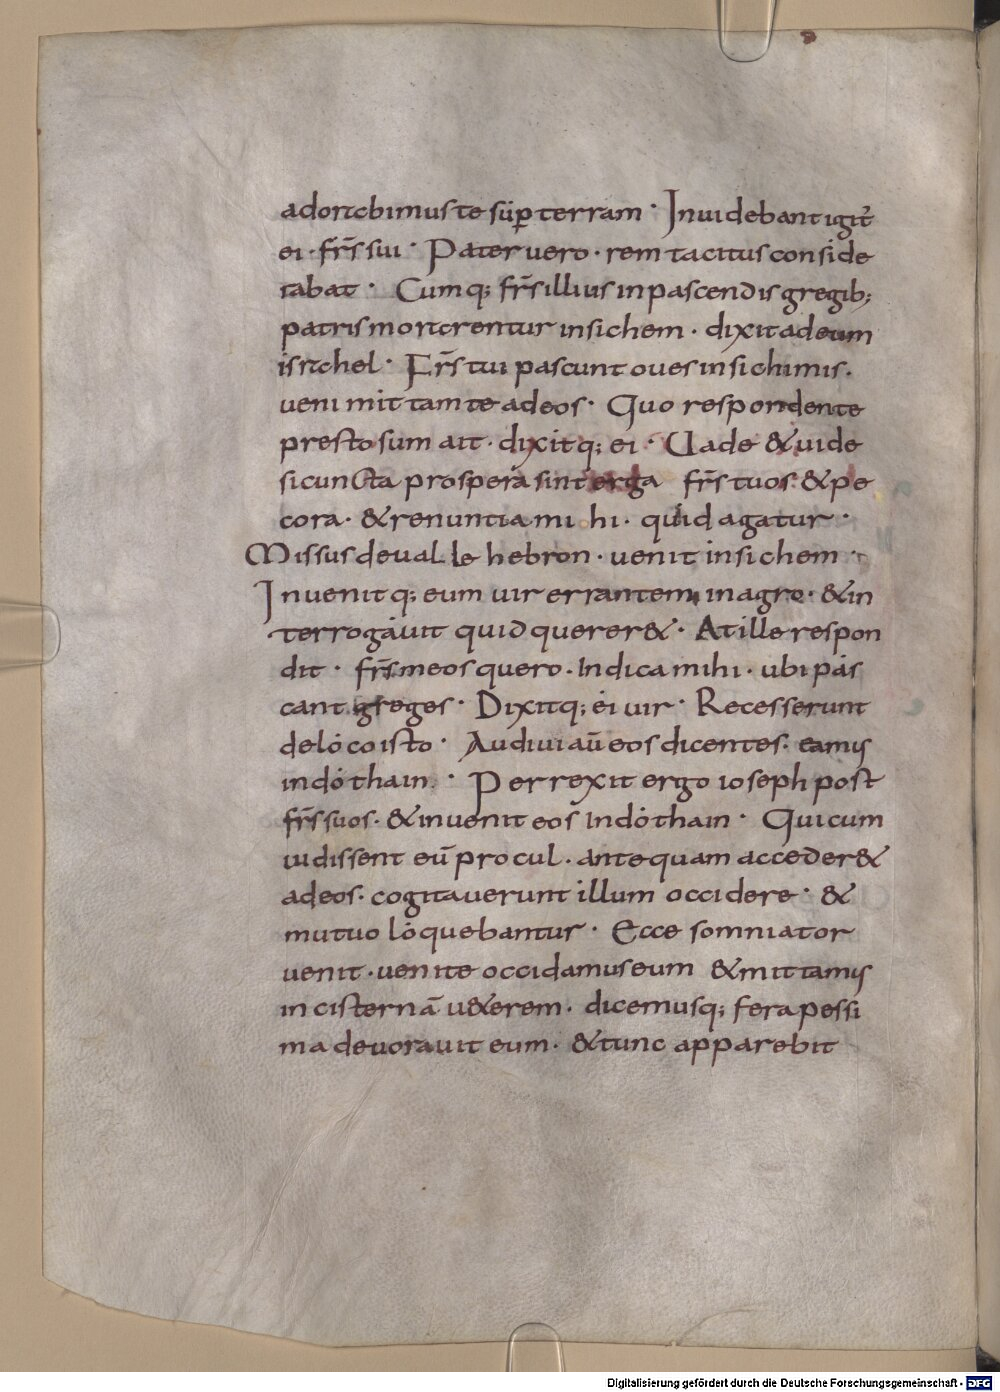 adorabimus te sup terram · Inuidebant igit̃
ei · fr̃s sui · Pater uero · rem tacitus conside
rabat · Cumq; fr̃s illius in pascendis gregib;
patris morarentur in sichem · dixit ad eum
israhel · Fr̃s tui pascunt oues in sichimis.
ueni mittam te ad eos · Quo respondente
presto sum ait · dixitq; ei · Uade & uide
si cuncta prospera sint erga fr̃s tuos · & pe
cora · & renuntia mihi · quid agatur ·
Missus de ualle hebron · uenit in sichem ·
Inuenitq; eum uir errantem in agro · & in
terrogauit quid querer& · At ille respon
dit · fr̃s meos quero · Indica mihi · ubi pas
cant greges · Dixitq; ei uir · Recesserunt
de loco isto · Audiui aũ eos dicentes · eamus
in dothain · Perrexit ergo ioseph post
fr̃s suos · & inuenit eos In dothain · Qui cum
uidissent eũ procul · antequam acceder&
ad eos · cogitauerunt illum occidere · &
mutuo loquebantur · Ecce somniator
uenit · uenite occidamus eum & mittamus
in cisternã u&erem · dicemusq; fera pessi
ma deuorauit eum · & tunc apparebit
Digitalisierung gefördert durch die Deutsche Forschungsgemeinschaft - DFG